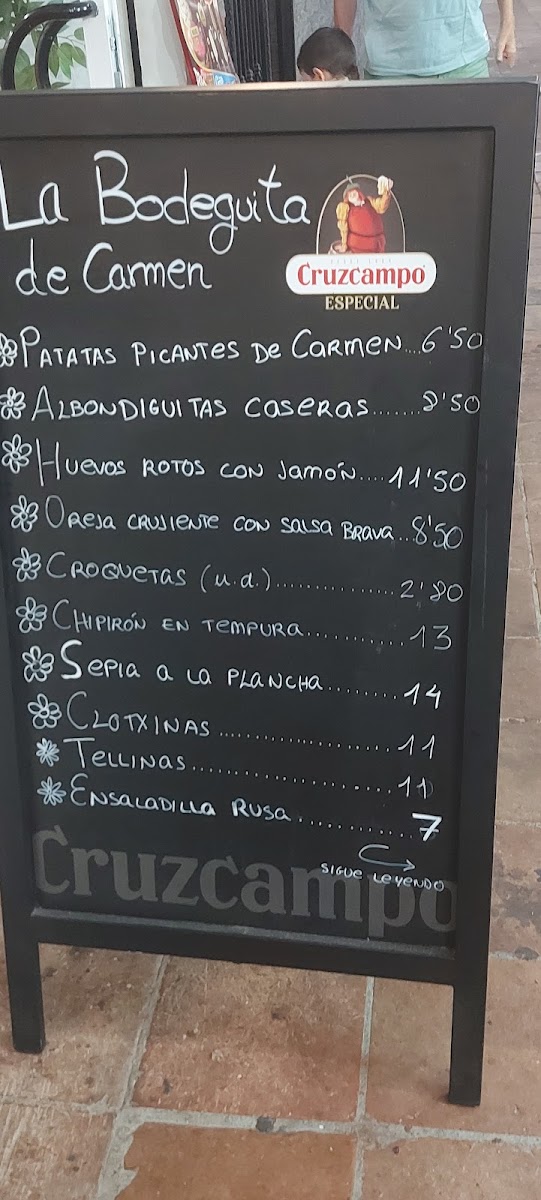 La Bodeguita
de Carmen
Cruzcampo
ESPECIAL
PATATAS PICANTES DE CARMEN...6'50
ALBONDIGUITAS CASERAS.......8'50
HUEVOS ROTOS CON JAMÓN....11'50
OREJA CRUJIENTE CON SALSA BRAVA..8'50
CROQUETAS (u.d.)...............2'80
CHIPIRÓN EN TEMPURA............13
SEPIA A LA PLANCHA.........14
CLOTXINAS......................11
TELLINAS.........................11
ENSALADILLA RUSA.............7
SIGUE LEYENDO
Cruzcampo